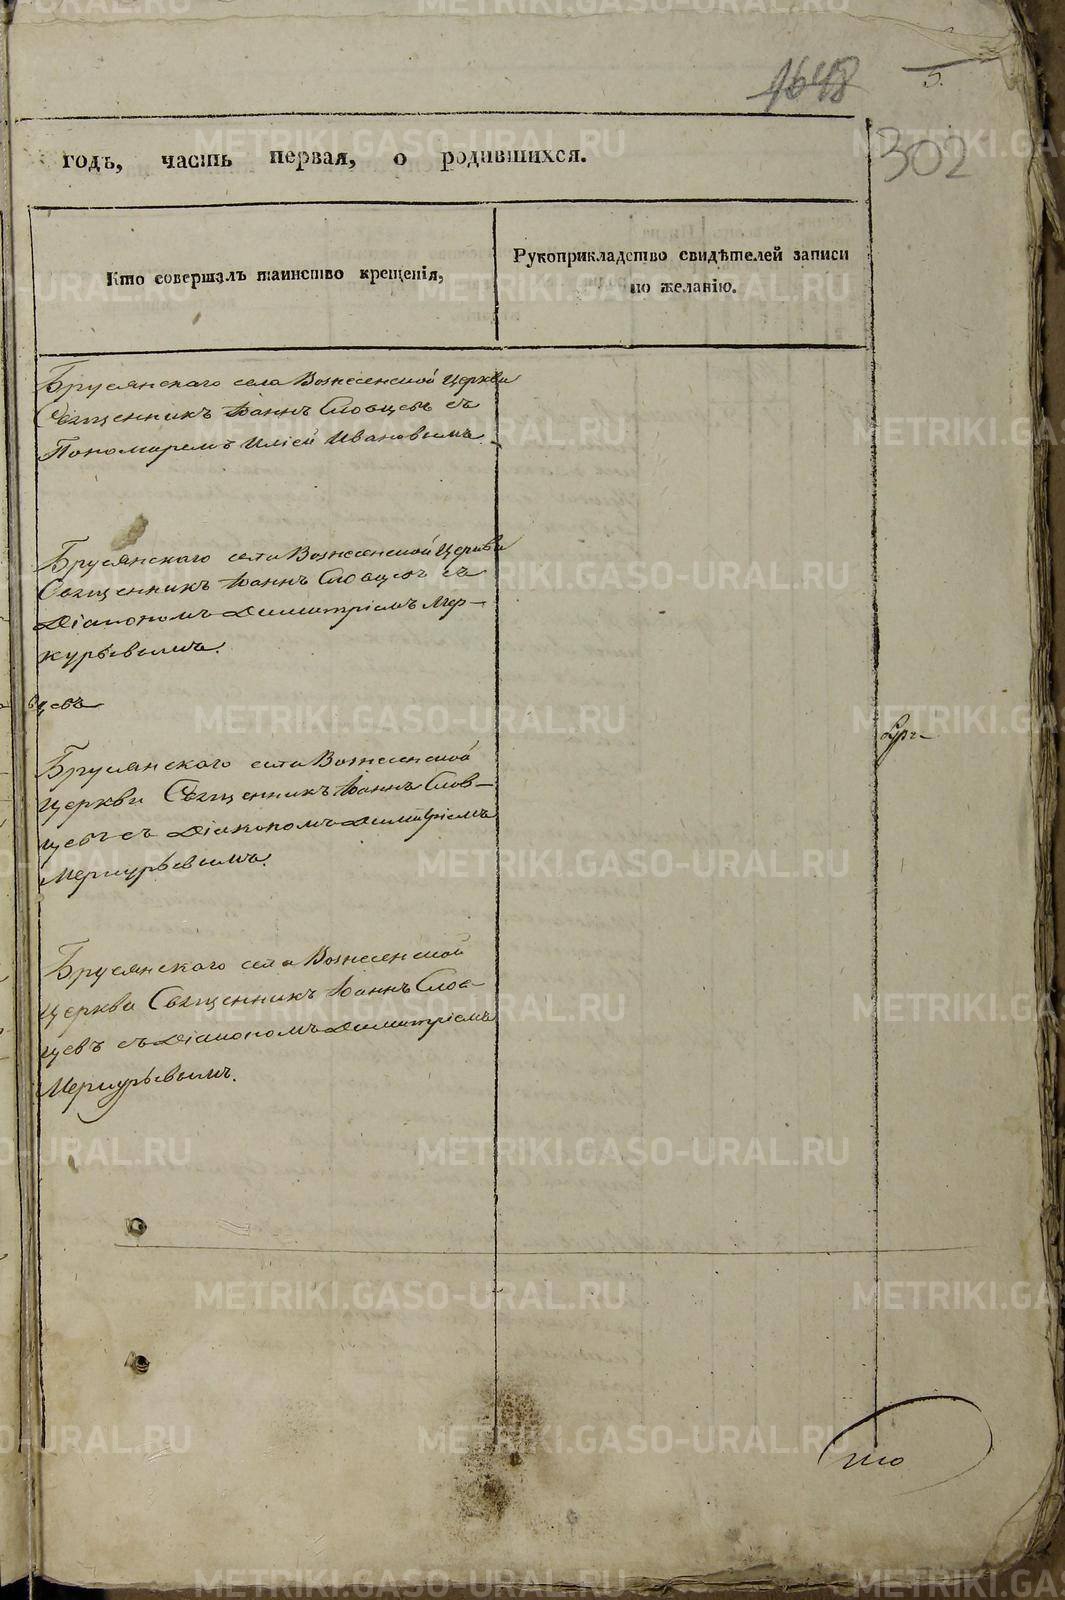 1648
5.
302
годъ, часть первая, о родившихся.
Кто совершалъ таинство крещенія,
Рукоприкладство свидѣтелей записи
по желанію.
Брусянскаго села Вознесенской Церкви
Священникъ Іоаннъ Словцевъ съ
Пономаремъ Иліей Ивановымъ.
Брусянскаго села Вознесенской Церкви
Священникъ Іоаннъ Словцевъ съ
Діакономъ Димитріемъ Мер-
курьевымъ.
цевъ
Брусянскаго села Вознесенской
Церкви Священникъ Іоаннъ Слов-
цевъ съ Діакономъ Димитріемъ
Меркурьевымъ.
Брусянскаго села Вознесенской
Церкви Священникъ Іоаннъ Слов-
цевъ съ Діакономъ Димитріемъ
Меркурьевымъ.
METRIKI.GASO-URAL.RU